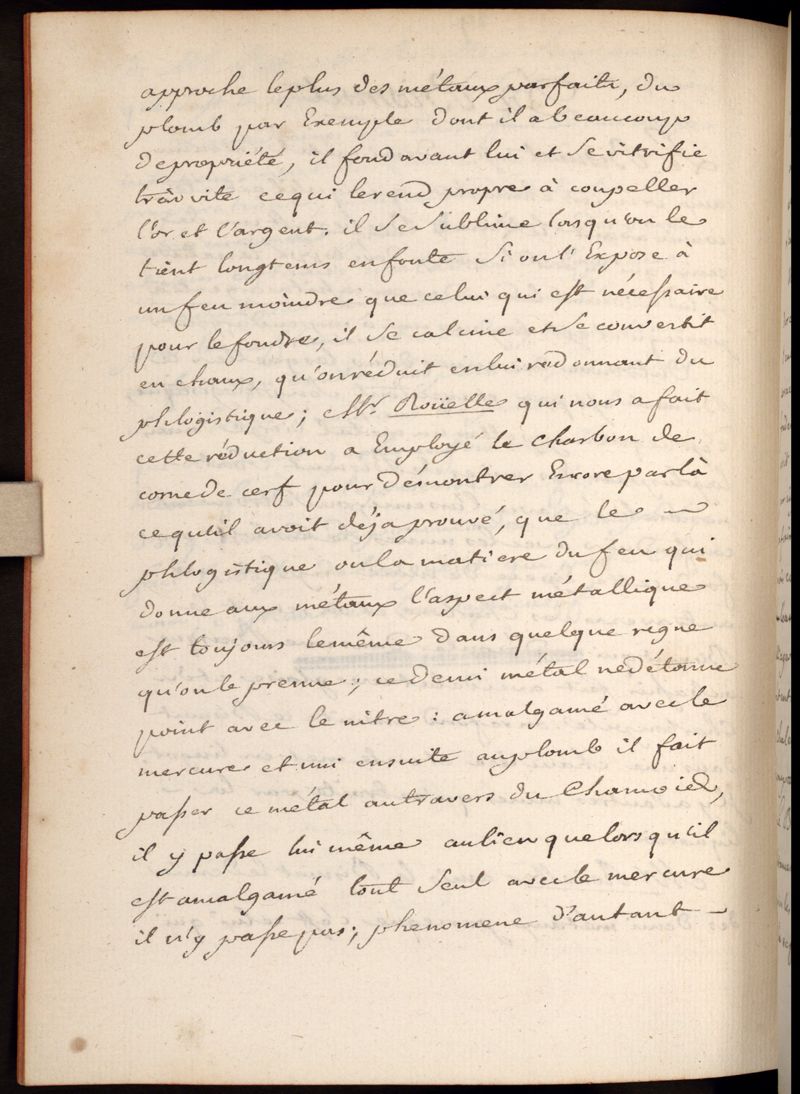 approche le plus des métaux parfaits, du
plomb par Exemple dont il a beaucoup
de propriété, il fond avant lui et se vitrifie
très vite ce qui le rend propre à coupeller
l'or et l'argent. il se sublime lorsqu'on le
tient longtems en fonte si on l'Expose à
un feu moindre que celui qui est nécessaire
pour le fondre, il se calcine et se convertit
en chaux, qu'on réduit en lui redonnant du
phlogistique; Mr. Roüelle qui nous a fait
cette réduction a Employé le charbon de
corne de cerf pour démontrer Encore par là
ce qu'il avoit déja prouvé, que le
phlogistique ou la matiere du feu qui
donne aux métaux l'aspect métallique
est toujours le même dans quelque regne
qu'on le prenne; ce demi métal ne détonne
point avec le nitre: amalgamé avec le
mercure et uni ensuite au plomb il fait
passer ce métal au travers du Chamois,
il y passe lui même au lieu que lorsqu'il
est amalgamé tout seul avec le mercure
il n'y passe pas; phenomene d'autant